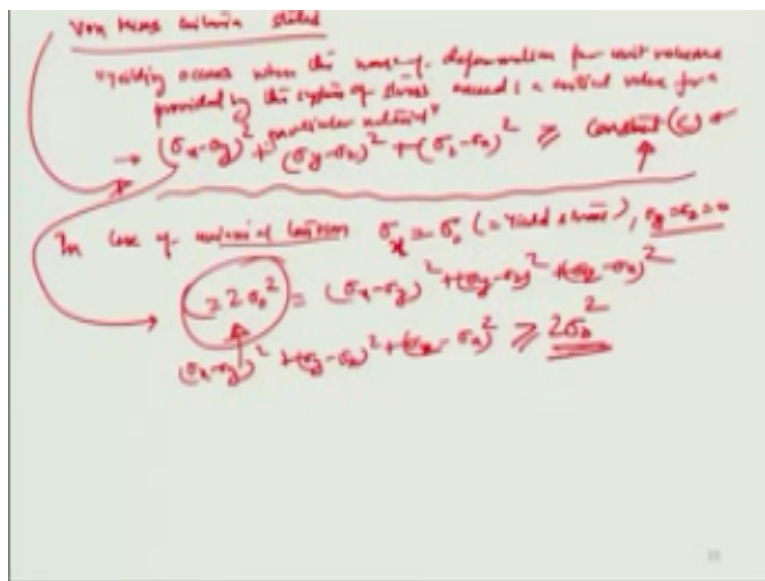 Von Mises criteria stated
"Yielding occurs when the work of deformation per unit volume
provided by the system of stress exceeds a critical value for a
particular material"
→ (σx-σy)² + (σy-σz)² + (σz-σx)² ≥ constant (C)
In case of uniaxial tension σx = σ₀ (= Yield stress), σy = σz = 0
= 2σ₀² = (σx-σy)² + (σy-σz)² + (σz-σx)²
(σx-σy)² + (σy-σz)² + (σz-σx)² ≥ 2σ₀²